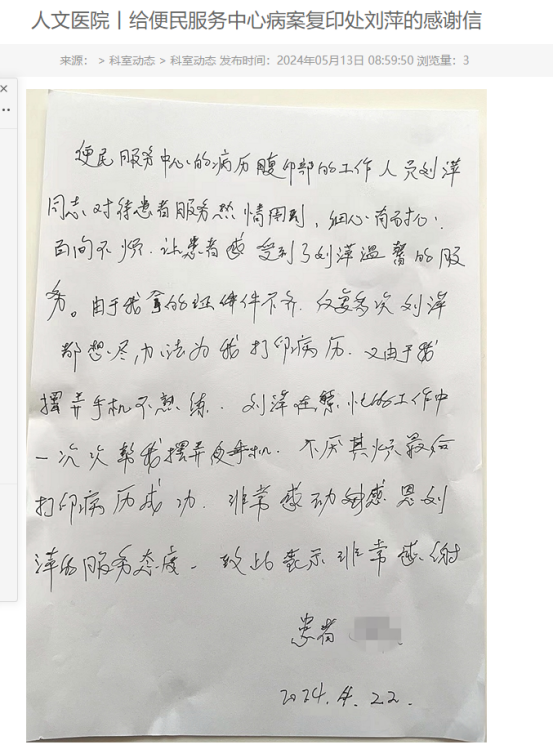 人文医院丨给便民服务中心病案复印处刘萍的感谢信
来源: > 科室动态 > 科室动态 发布时间: 2024年05月13日 08:59:50 浏览量: 3
便民服务中心的病历腹印部的工作人员刘萍
同志、对待患者服务热情周到，细心有耐心.
百问不烦.让患者感受到了刘萍温馨的服
务。由于我拿的证件件不齐.反复多次刘萍
都想尽,办法为我打印病历.又由于我
摆弄手机不熟练.刘萍在繁忙的工作中
一次次帮我摆弄手机.不厌其烦最后
打印病历成功.非常感动感恩刘
萍的服务态度.致此表示非常感谢
患者
2024.4.22.